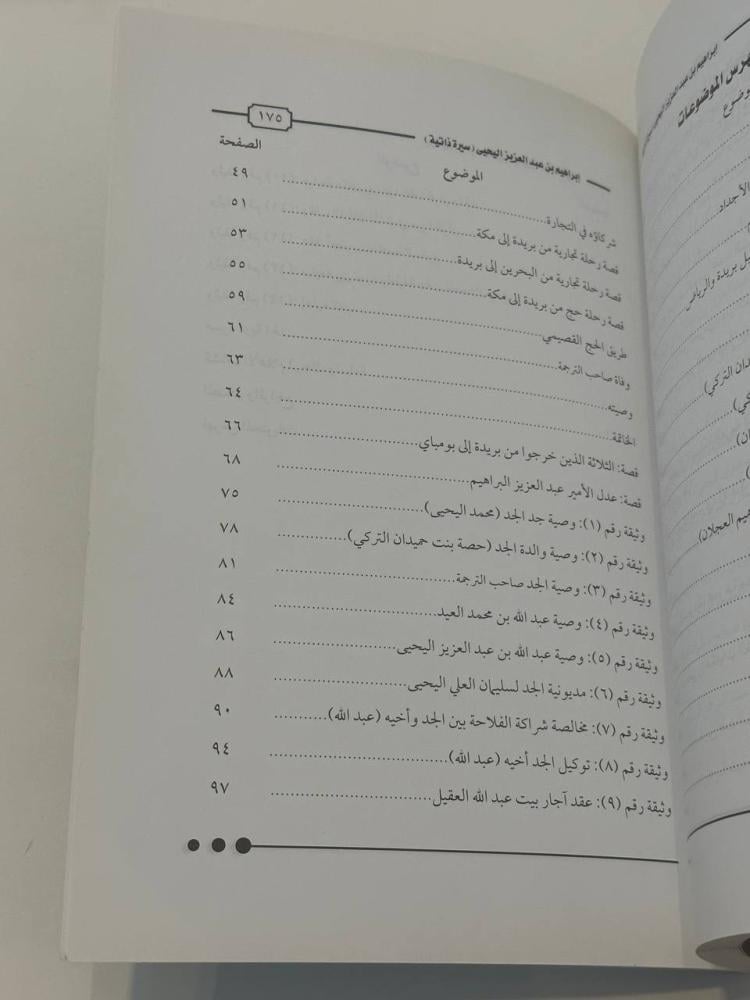 ١٧٥
إبراهيم بن عبد العزيز اليحيى (سيرة ذاتية)
الموضوع الصفحة
شركاؤه في التجارة ٤٩
قصة رحلة تجارية من بريدة إلى مكة ٥١
قصة رحلة تجارية من البحرين إلى بريدة ٥٣
قصة رحلة حج من بريدة إلى مكة ٥٥
طريق الحج القصيمي ٥٩
وفاة صاحب الترجمة ٦١
وصيته ٦٣
الخاتمة ٦٤
قصة: الثلاثة الذين خرجوا من بريدة إلى بومباي ٦٦
قصة: عدل الأمير عبد العزيز البراهيم ٦٨
وثيقة رقم (١): وصية جد الجد (محمد اليحيى) ٧٥
وثيقة رقم (٢): وصية والدة الجد (حصة بنت حميدان التركي) ٧٨
وثيقة رقم (٣): وصية الجد صاحب الترجمة ٨١
وثيقة رقم (٤): وصية عبد الله بن محمد العيد ٨٤
وثيقة رقم (٥): وصية عبد الله بن عبد العزيز اليحيى ٨٦
وثيقة رقم (٦): مديونية الجد لسليمان العلي اليحيى ٨٨
وثيقة رقم (٧): مخالصة شراكة الفلاحة بين الجد وأخيه (عبد الله) ٩٠
وثيقة رقم (٨): توكيل الجد أخيه (عبد الله) ٩٤
وثيقة رقم (٩): عقد آجار بيت عبد الله العقيل ٩٧
إبراهيم بن عبد العزيز
الموضوعات
الأجداد
بريدة والرياض
التركي)
العجلان)